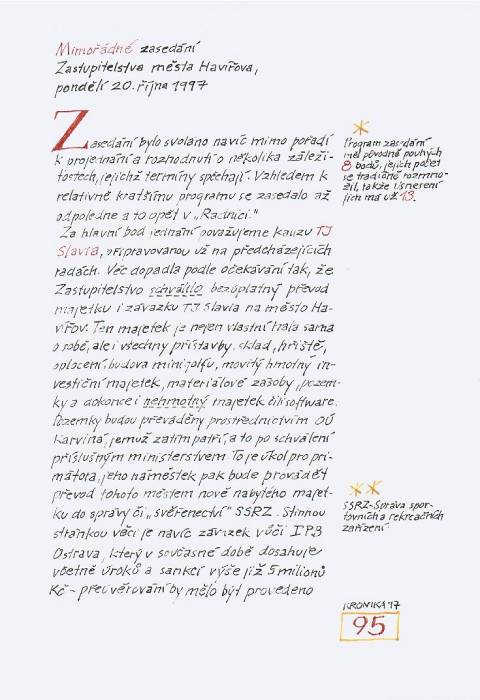 Mimořádné zasedání
Zastupitelstva města Havířova,
pondělí 20. října 1997
Zasedání bylo svoláno navíc mimo pořadí
k projednání a rozhodnutí o několika záleži-
tostech, jejichž termíny spěchají. Vzhledem k
relativně kratšímu programu se zasedalo až
odpoledne a to opět v „Radnici."
Za hlavní bod jednání považujeme kauzu TJ
Slavia, připravovanou už na předcházejících
radách. Věc dopadla podle očekávání tak, že
Zastupitelstvo schválilo bezúplatný převod
majetku i závazku TJ Slavia na město Ha-
vířov. Ten majetek je nejen vlastní hala sama
o sobě, ale i všechny přístavby, sklad, hřiště,
oplocení, budova minigolfu, movitý hmotný in-
vestiční majetek, materiálové zásoby, pozem-
ky a dokonce i nehmotný majetek čili software.
Pozemky budou převáděny prostřednictvím OÚ
Karviná, jemuž zatím patří, a to po schválení
příslušným ministerstvem. To je úkol pro pri-
mátora, jeho náměstek pak bude provádět
převod tohoto městem nově nabytého majet-
ku do správy či „svěřenectví" SSRZ. Stinnou
stránkou věci je navíc závazek vůči IPB
Ostrava, který v současné době dosahuje
včetně úroků a sankcí výše již 5 milionů
Kč - přeúvěrování by mělo být provedeno
*
Program zasedání
měl původně pouhých
8 bodů, jejich počet
se tradičně rozmno-
žil, takže usnesení
jich má už 13.
**
SSRZ-Správa spor-
tovních a rekreačních
zařízení
KRONIKA 17
95